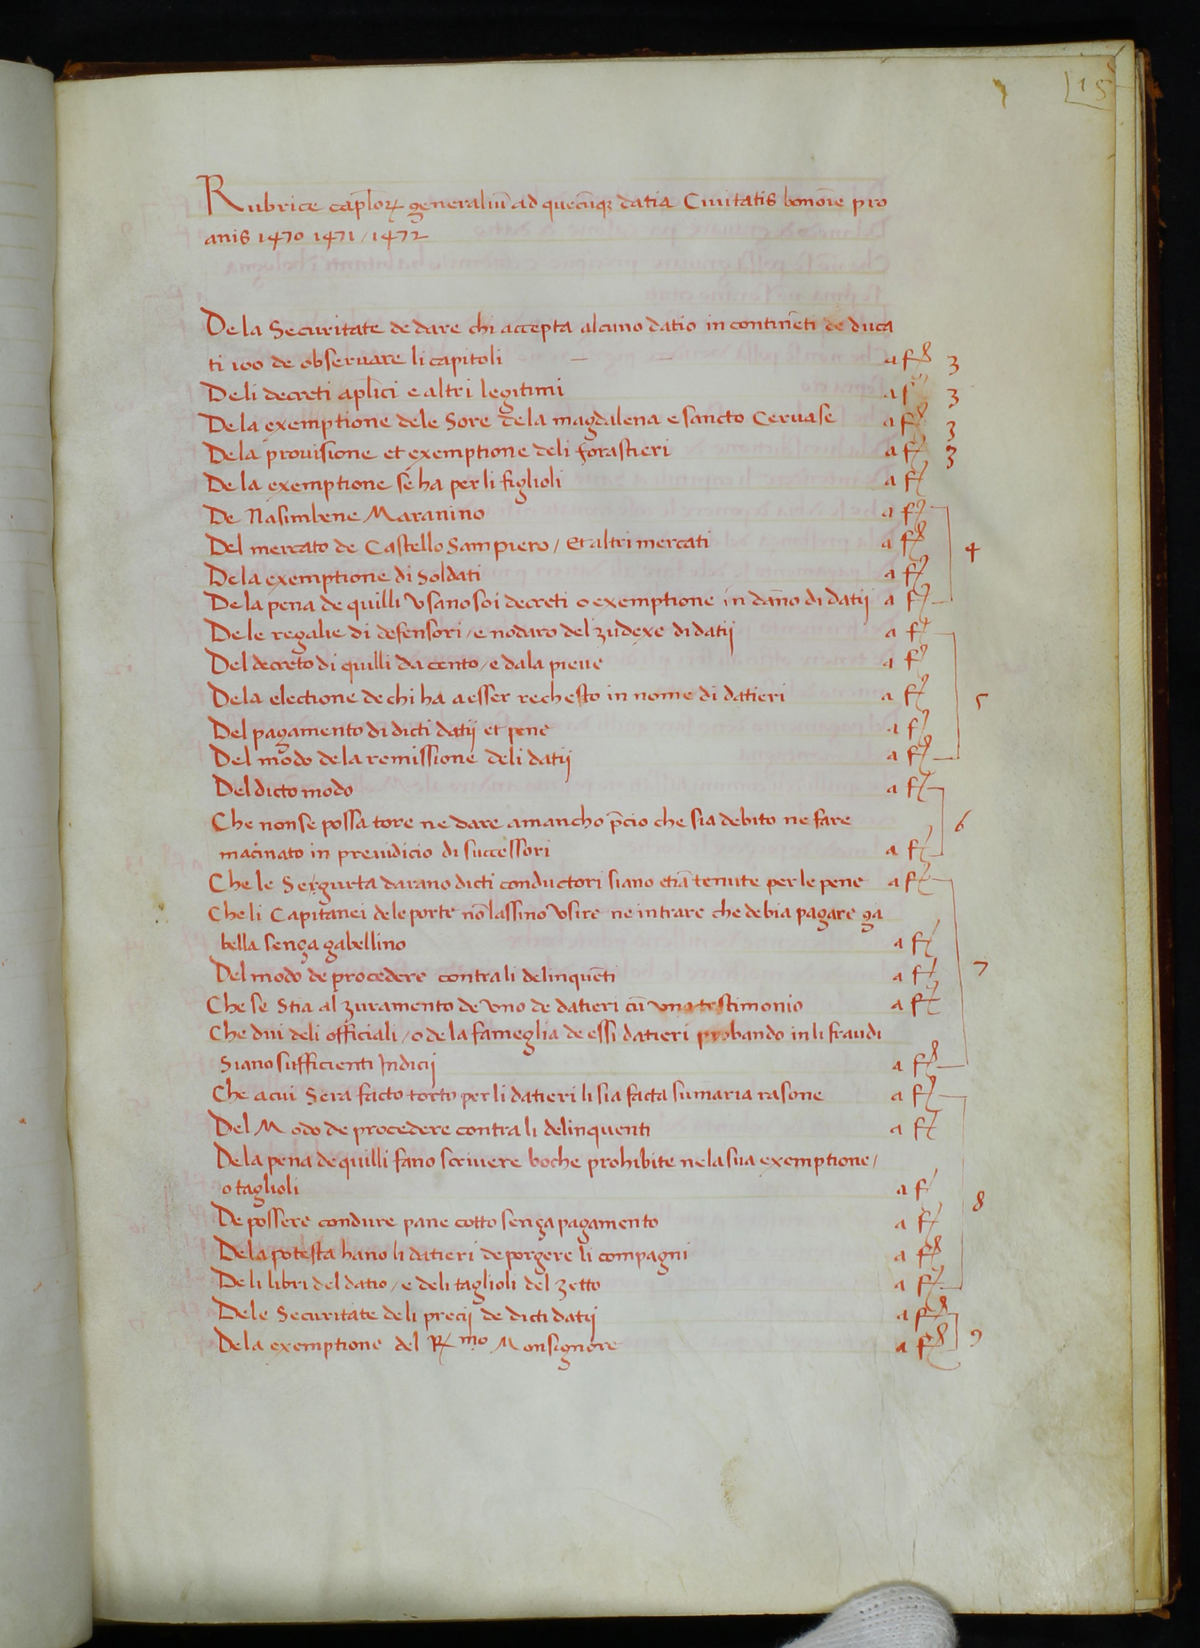 15
Rubrice cap̄loꝝ generaliū ad quecūqꝫ datia Ciuitatis bononie pro
anis 1470 1471 / 1472
De la Securitate de dare chi accepta alcuno datio in continēti de duca
ti 100 de obseruare li capitoli a f 3
De li decreti ap̄lici e altri legitimi a f 3
De la exemptione dele Sore dela magdalena e sancto Ceruase a f 3
De la prouisione et exemptione deli forastieri a f 3
De la exemptione se ha per li figlioli a f
De Nasimbene Maranino a f
Del mercato de Castello Sampiero / Et altri mercati a f 4
De la exemptione di Soldati a f
De la pena de quilli vsano soi decreti o exemptione in dan̄o di datij a f
De le regalie di defensori / e nodaro del zudexe di datij a f
Del decreto di quilli da cento / e dala pieue a f
De la electione de chi ha a esser rechesto in nome di datieri a f 5
Del pagamento di dicti datij et pene a f
Del modo de la remissione deli datij a f
Del dicto modo a f
Che non se possa tore ne dare a mancho p̄cio che sia debito ne fare 6
macinato in preiudicio di successori a f
Che le Segurta darano dicti conductori siano etiā tenute per le pene a f
Che li Capitanei dele porte nō lassino vsire ne intrare che debia pagare ga
bella sença gabellino a f
Del modo de procedere contra li delinquēti a f 7
Che se Stia al zuramento de vno de datieri cū vno testimonio a f
Che dui deli officiali / o de la fameglia de essi datieri probando in li fraudi
Siano sufficienti Indicij a f
Che a cui Sera facto torto per li datieri li sia facta sum̄aria rasone a f
Del Modo de procedere contra li delinquenti a f
De la pena de quilli fano scriuere boche prohibite ne la sua exemptione /
o taglioli a f 8
De possere condure pane cotto sença pagamento a f
De la potesta hano li datieri de porgere li compagni a f
De li libri del datio / e deli taglioli del zetto a f
Dele Securitate deli precij de dicti datij a f
De la exemptione del R mo Monsignore a f 9